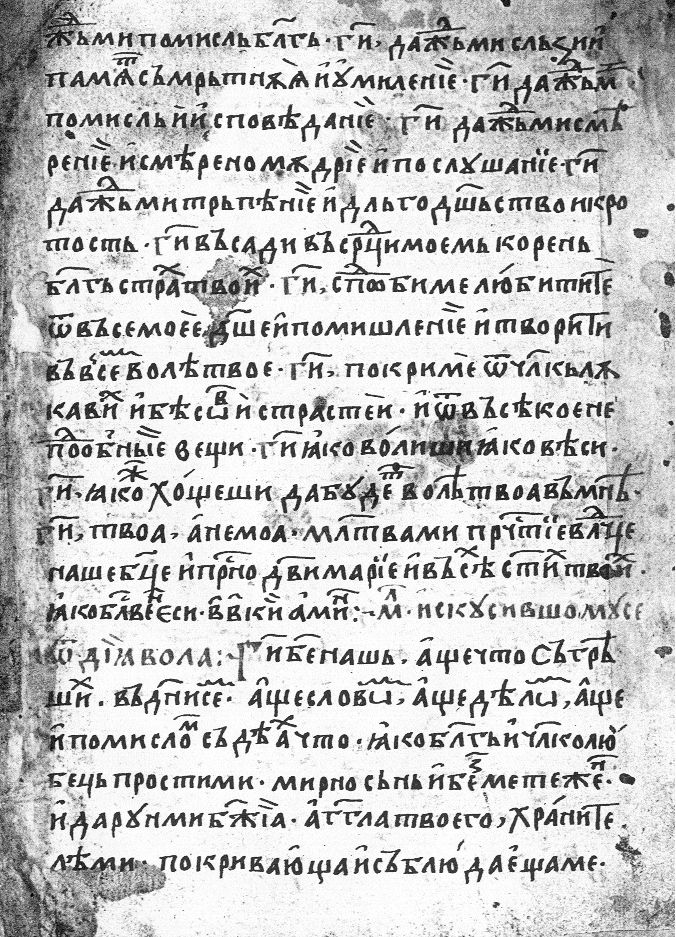 жⷣьми помисль блг҃ть · гї҃и, даждⷣьми сльꙁи и҆
памѧⷮ съмрьтнꙋѫ и҆ ꙋ҆миленїе · гї҃и даⷤⷣьми
помисль и҆ и҆сповѣданїе · гї҃и даⷤⷣьми смѣ
ренїе и҆ смѣреномѫдрїе и҆ послꙋшанїе · гї҃и
даⷤⷣьми трьпѣнїе и҆ дльгодш҃ьство и кро
тость · гї҃и въсади въ срⷣци моемь корень
блг҃ть страⷯ твои · гї҃и, споⷣби ме любити те
ѿ въсе мое дш҃е и҆ помишленїе и҆ творити
въ въсеⷨ волѣ твое · гї҃и, покри ме ѿ чл҃кь лѫ
кавиⷯ и҆ бѣсѡⷡ и҆ страстеи · и҆ ѿ въсѣкое не
поⷣобнꙑе вещи · гї҃и ꙗко волиши ꙗко вѣси ·
гї҃и · ꙗкоⷤ хощеши да бꙋдеⷮ волѣ твоа въ мнѣ ·
гї҃и, твоа, а҆ не моа · мл҃твами прч҃тїе влⷣче
наше бц҃е и҆ прⷭ҇но дв҃и марїе и҆ въсѣⷯ ст҃иⷯ твоиⷯ ·
ꙗко блⷭ҇венⷩ еси · в вѣки аминⷩ :~ мⷧ · искꙋсившомꙋ се
ѿ дїꙗвола : Ги҃ б҃е нашь · а҆ще что сътрѣ
шиⷯ · въ дн҃и сеⷨ · а҆ще словѡⷨ, а҆ще дѣлѡⷨ, а҆ще
и҆ помислоⷨ съдѣаⷯ что · ꙗко блг҃ть и҆ чл҃колю
бець прости ми · мирно сьнь и҆ беⷥметежеⷩ ·
и҆ дарꙋи ми бж҃їа · аг҃гла твоего, храните
лѣ ми · покривающа и҆ съблюдаеща ме ·